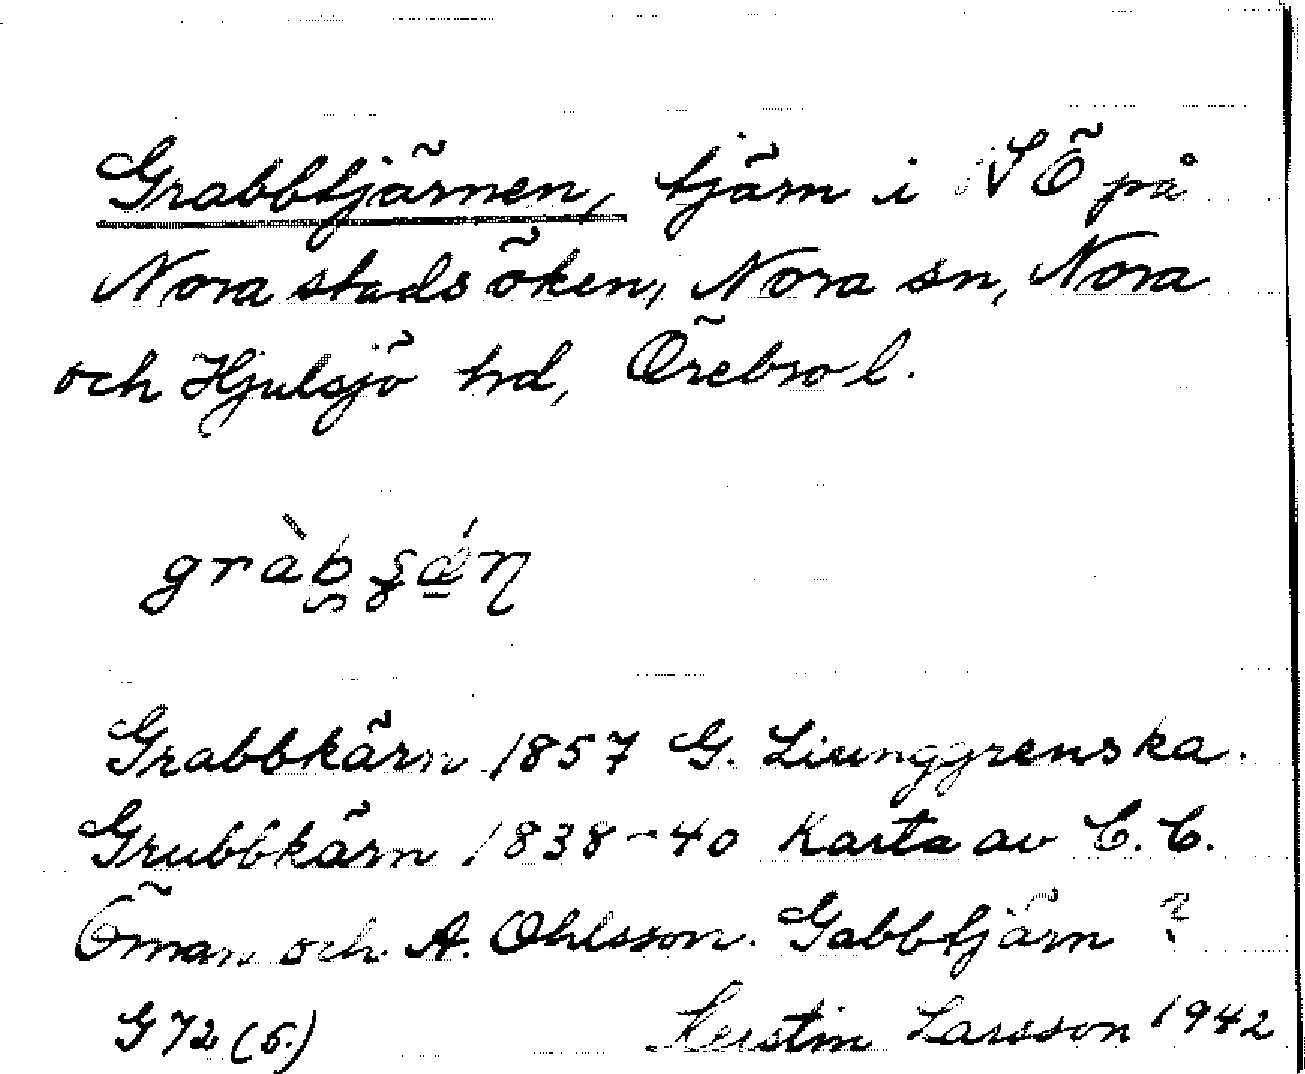 Grabbtjärnen, tjärn i SÖ på
Nora stads öken, Nora sn, Nora
och Hjulsjö hd, Örebro l.
gràb̰ʂǽ̠ɳ
Grabbkärn 1857 G. Liunggrenska.
Grubbkärn 1838-40 Karta av C. C.
Öman och A. Ohlsson. Gabbtjärn ?
G 72 (6.) Kerstin Larsson 1942